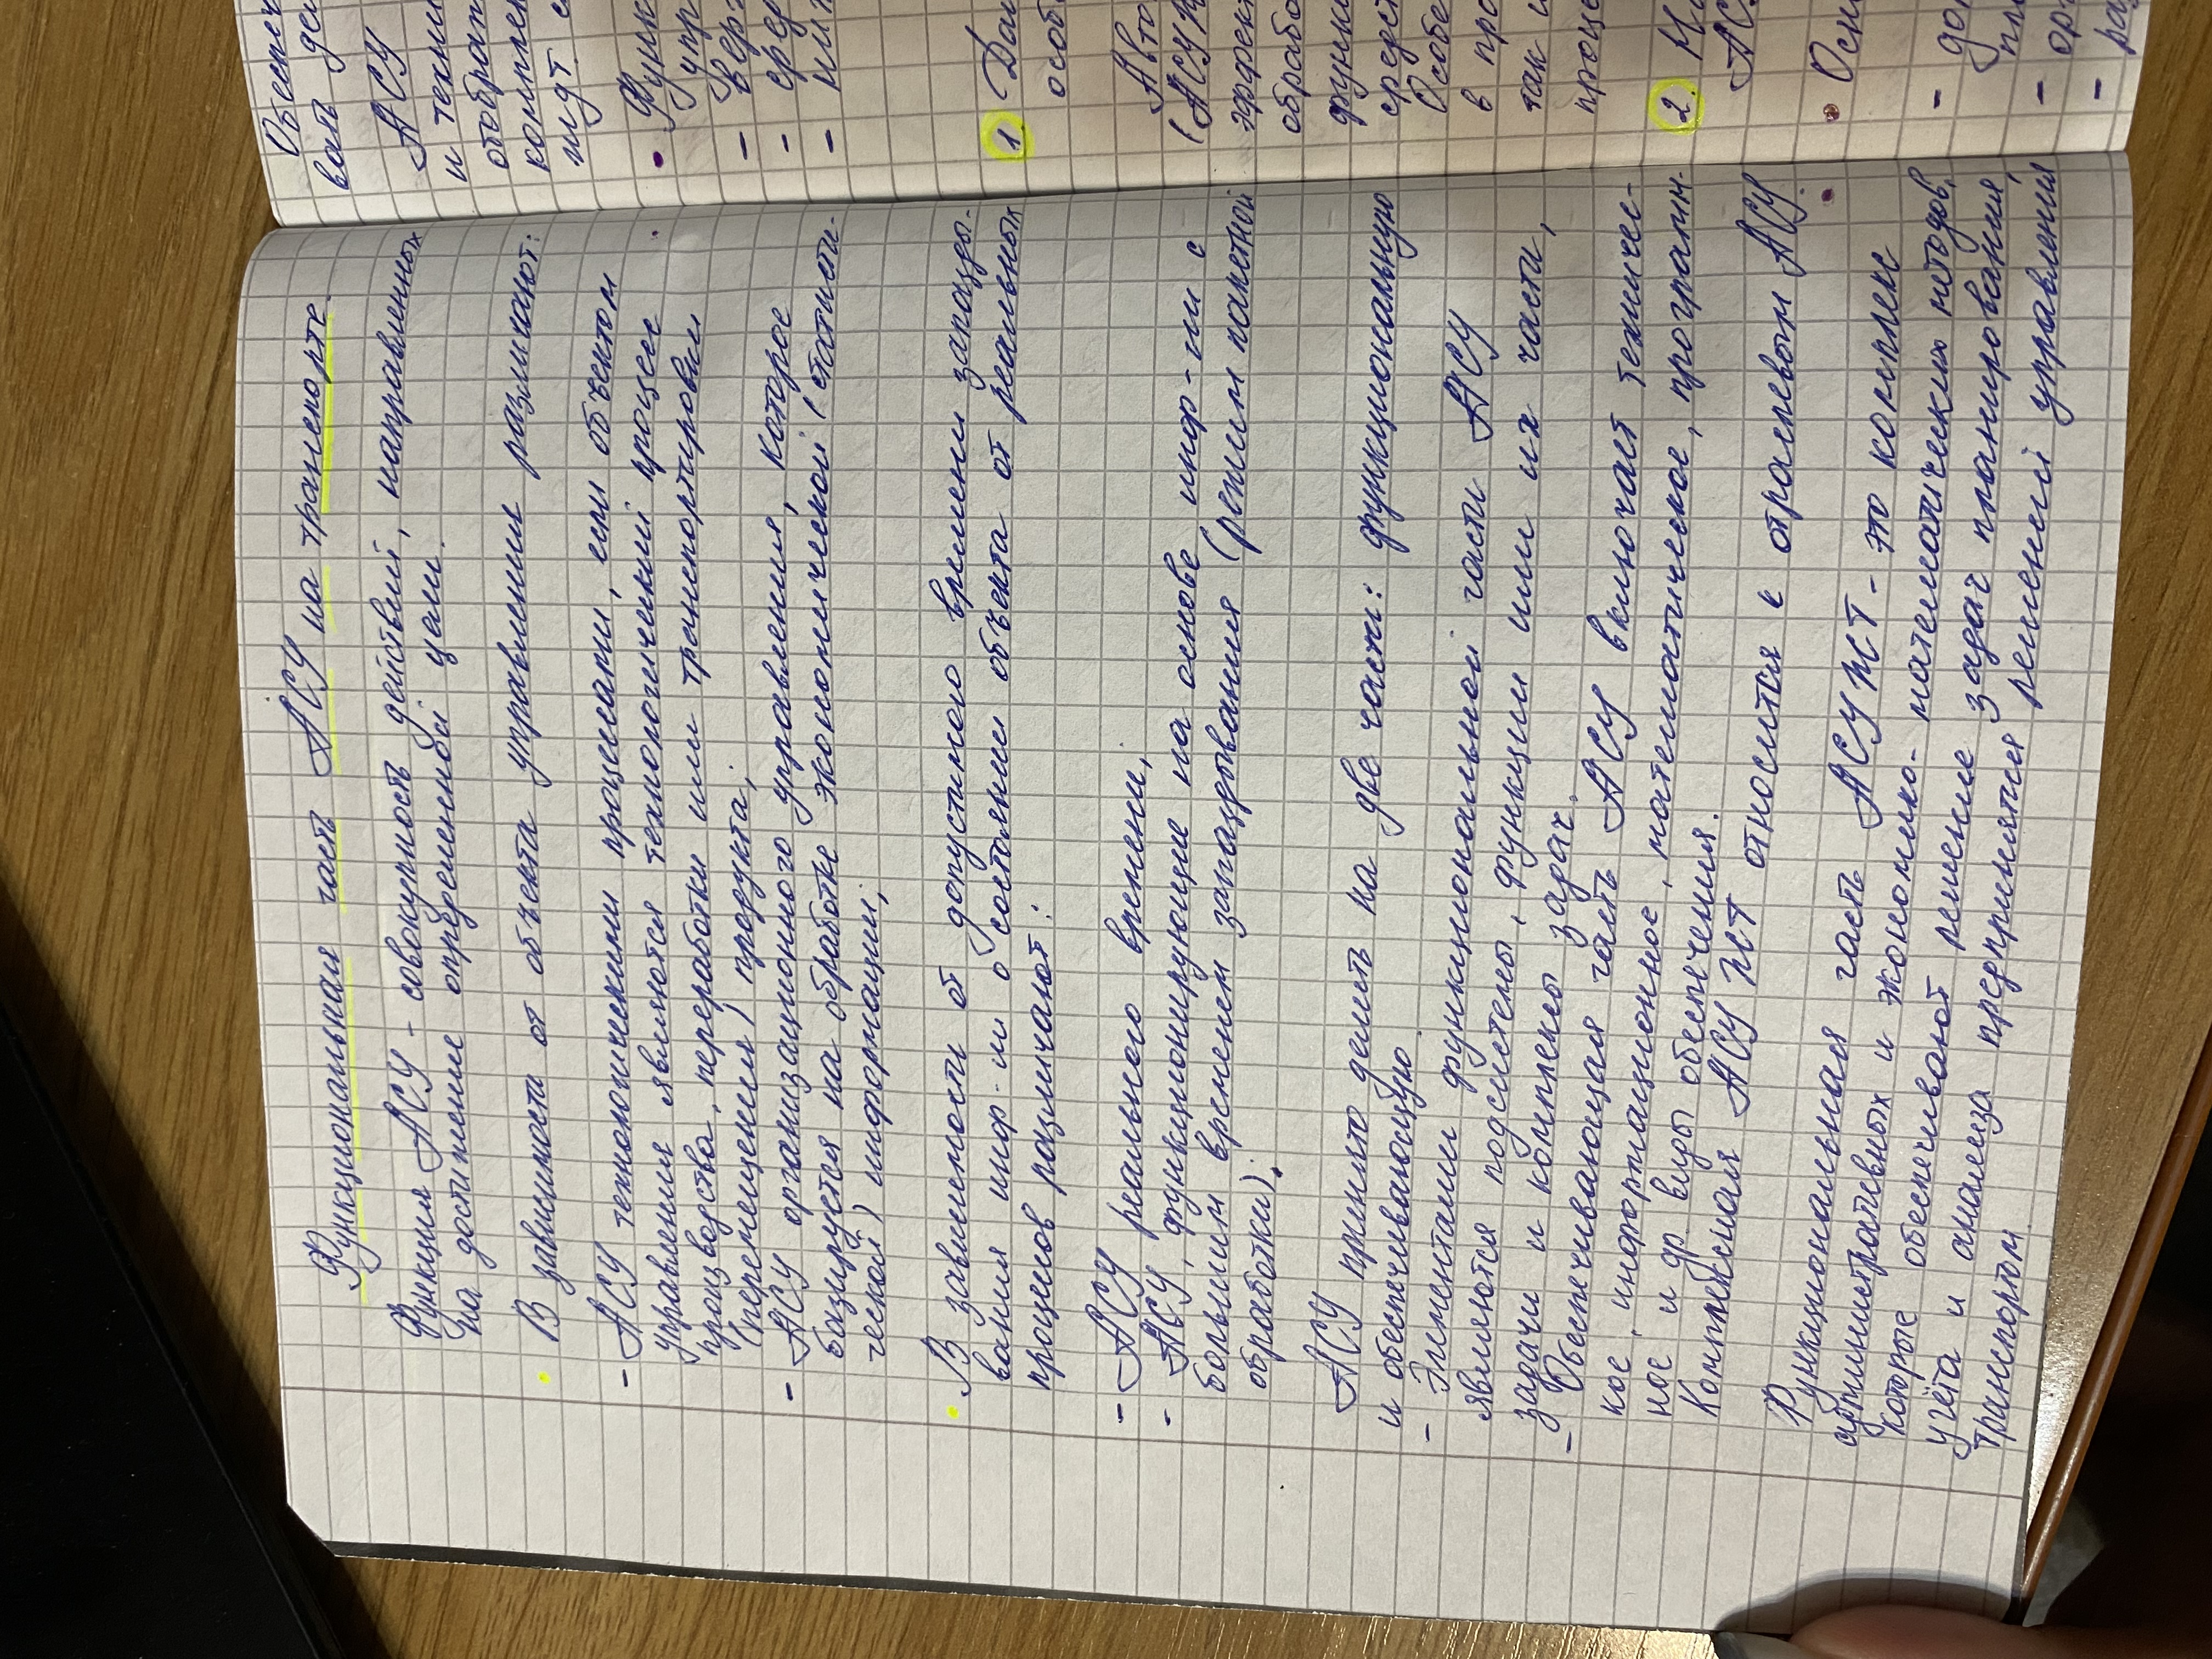 Функциональная часть АСУ на транспорте.
Функция АСУ - совокупность действий, направленных
на достижение определенной цели.
• В зависимости от объекта управления различают:
- АСУ технологическими процессами, если объектом
управления являются технологический процесс
производства, переработки или транспортировки
(перемещения) продукта;
- АСУ организационного управления, которое
базируется на обработке экономической (статисти-
ческой) информации;
• В зависимости от допустимого времени запазды-
вания инф-ии о состоянии объекта от реальных
процессов различают:
- АСУ реального времени,
- АСУ, функционирующие на основе инф-ии с
большим временем запаздывания (режим пакетной
обработки).
АСУ принято делить на две части: функциональную
и обеспечивающую.
- Элементами функциональной части АСУ
являются подсистемы, функции или их части,
задачи и комплексы задач.
- Обеспечивающая часть АСУ включает техничес-
кое, информационное, математическое, программ-
ное и др. виды обеспечения.
Комплексная АСУ ЖТ относится к отраслевым АСУ.
Функциональная часть АСУ ЖТ - это комплекс
административных и экономико-математических методов,
которые обеспечивают решение задач планирования,
учёта и анализа предпринятия решений управления
транспортом
вать
АСУ
и
-
-
-
1. Дай
2.
АС
-
-
-